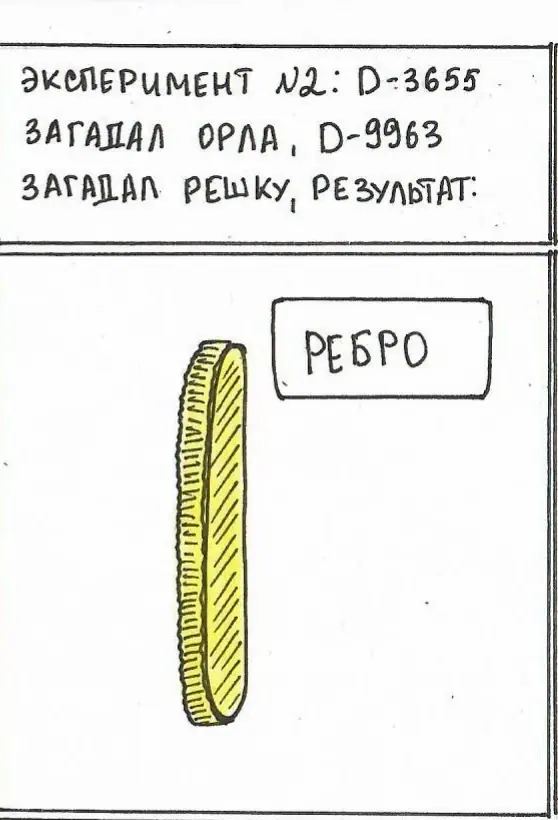 ЭКСПЕРИМЕНТ №2: D-3655
ЗАГАДАЛ ОРЛА, D-9963
ЗАГАДАЛ РЕШКУ, РЕЗУЛЬТАТ:
РЕБРО